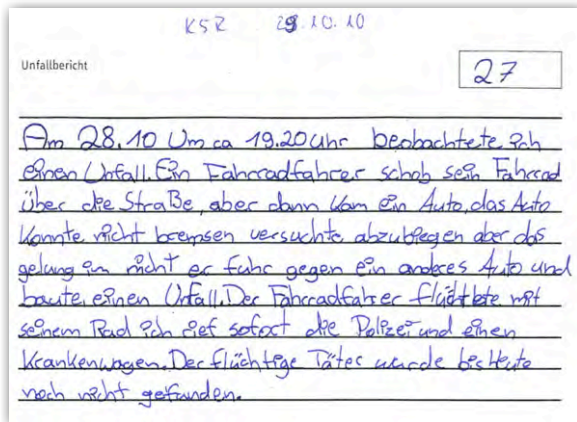 KSR 29.10.10
Unfallbericht
27
Am 28.10 Um ca 19.20 uhr beobachtete ich
einen Unfall. Ein Fahrradfahrer schob sein Fahrrad
über die Straße, aber dann kam ein Auto, das Auto
konnte nicht bremsen versuchte abzubiegen aber das
gelung im nicht er fuhr gegen ein anderes Auto und
baute einen Unfall. Der Fahrradfahrer flüchtete mit
seinem Rad ich rief sofort die Polizei und einen
Krankenwagen. Der flüchtige Täter wurde bis Heute
noch nicht gefunden.